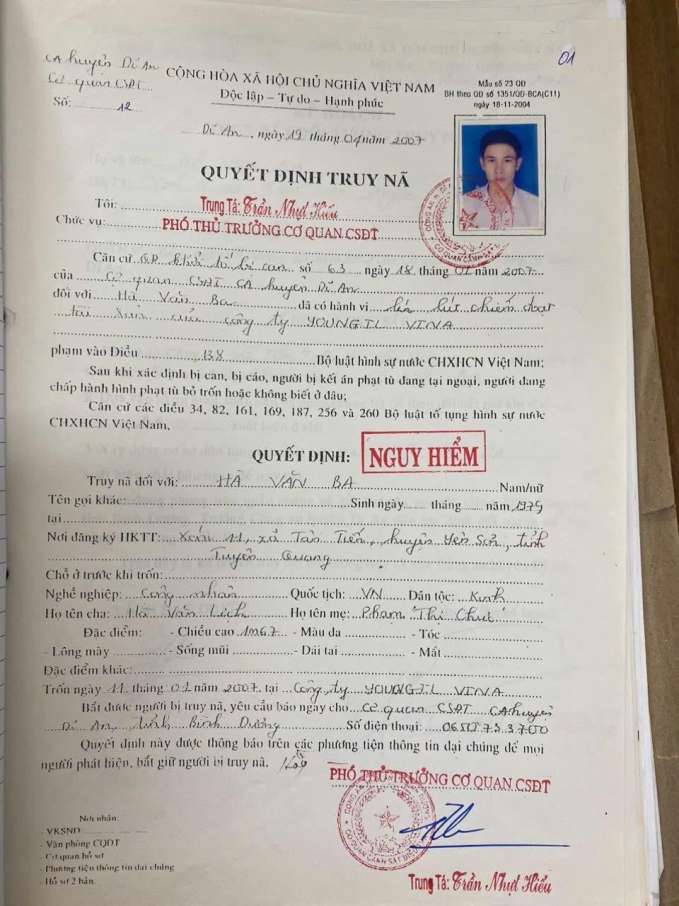 01
CA huyện Dĩ An
Cơ quan CSĐT
CỘNG HÒA XÃ HỘI CHỦ NGHĨA VIỆT NAM
Độc lập – Tự do – Hạnh phúc
Mẫu số 23 QĐ
BH theo QĐ số 1351/QĐ-BCA(C11)
ngày 18-11-2004
Số: 12
Dĩ An, ngày 19 tháng 04 năm 2007
QUYẾT ĐỊNH TRUY NÃ
Tôi: Trung Tá: Trần Nhựt Hiếu
Chức vụ: PHÓ THỦ TRƯỞNG CƠ QUAN CSĐT
Căn cứ QĐ khởi tố bị can số 63 ngày 18 tháng 01 năm 2007
của Cơ quan CSĐT CA huyện Dĩ An
đối với Hà Văn Ba đã có hành vi lén lút chiếm đoạt
tài sản của công ty YOUNGIL VINA
phạm vào Điều 138 Bộ luật hình sự nước CHXHCN Việt Nam;
Sau khi xác định bị can, bị cáo, người bị kết án phạt tù đang tại ngoại, người đang
chấp hành hình phạt tù bỏ trốn hoặc không biết ở đâu;
Căn cứ các điều 34, 82, 161, 169, 187, 256 và 260 Bộ luật tố tụng hình sự nước
CHXHCN Việt Nam,
QUYẾT ĐỊNH: NGUY HIỂM
Truy nã đối với: HÀ VĂN BA Nam/nữ
Tên gọi khác: Sinh ngày tháng năm 1979
tại
Nơi đăng ký HKTT: Xóm 11, xã Tân Tiến, huyện Yên Sơn, tỉnh
Tuyên Quang
Chỗ ở trước khi trốn:
Nghề nghiệp: Công nhân Quốc tịch: VN Dân tộc: Kinh
Họ tên cha: Hà Văn Lịch Họ tên mẹ: Phạm Thị Chút
Đặc điểm: - Chiều cao 1m67 - Màu da - Tóc
- Lông mày - Sống mũi - Dái tai - Mắt
Đặc điểm khác:
Trốn ngày 11 tháng 01 năm 2007 tại Công ty YOUNGIL VINA
Bắt được người bị truy nã, yêu cầu báo ngay cho Cơ quan CSĐT CA huyện
Dĩ An, tỉnh Bình Dương Số điện thoại: 0650.753700
Quyết định này được thông báo trên các phương tiện thông tin đại chúng để mọi
người phát hiện, bắt giữ người bị truy nã.
PHÓ THỦ TRƯỞNG CƠ QUAN CSĐT
Nơi nhận:
- VKSND
- Văn phòng CQĐT
- Cơ quan hồ sơ
- Phương tiện thông tin đại chúng
- Hồ sơ 2 bản.
Trung Tá: Trần Nhựt Hiếu